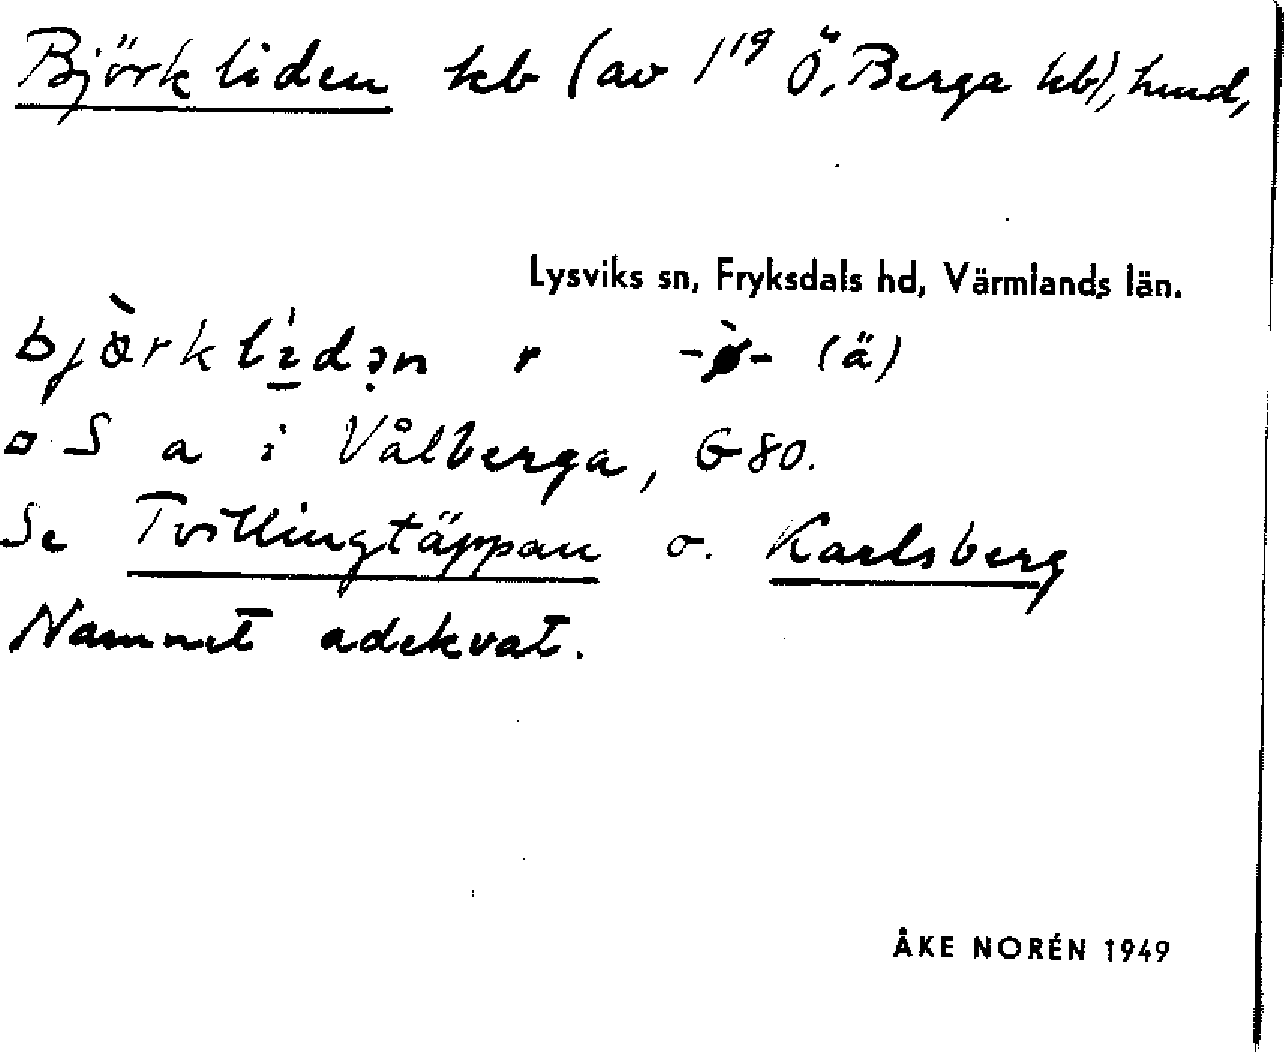 Björkliden hb (av 1¹⁹ Ö. Berga hb), hmd,
Lysviks sn, Fryksdals hd, Värmlands län.
bjœ̀rklı̍dən r -ø̀- (ä)
S a i Vålberga, G 80.
Se Tvillingtäppan o. Karlsberg
Namnet adekvat.
ÅKE NORÉN 1949